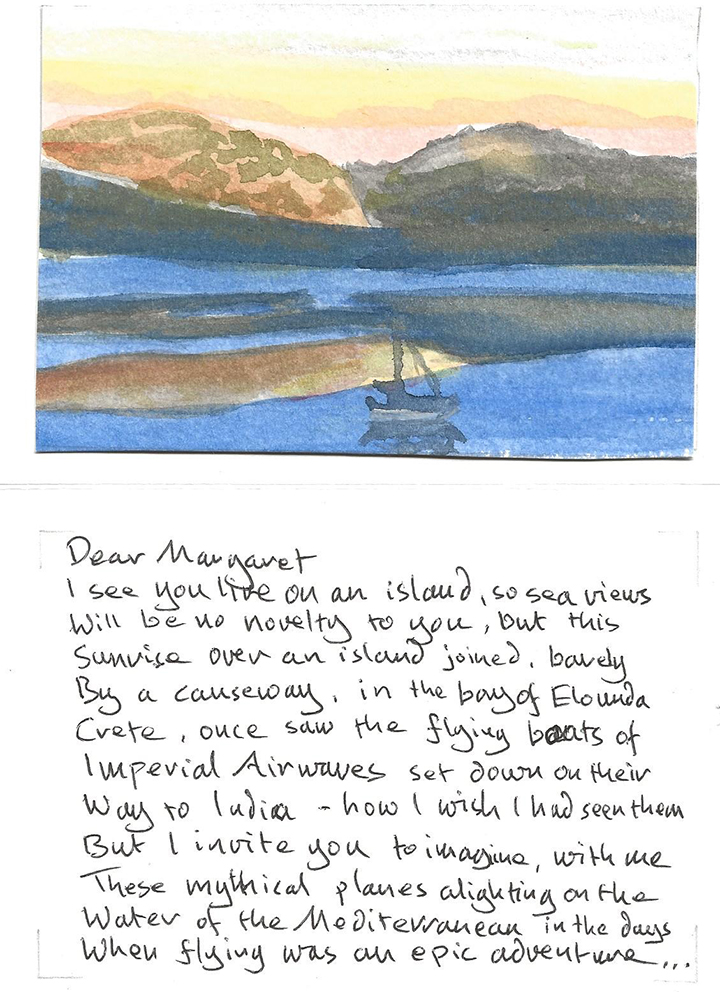 Dear Margaret
I see you live on an island, so sea views
Will be no novelty to you, but this
Sunrise over an island joined, barely
By a causeway, in the bay of Elounda
Crete, once saw the flying boats of
Imperial Airwaves set down on their
Way to India - how I wish I had seen them
But I invite you to imagine, with me
These mythical planes alighting on the
Water of the Mediterranean in the days
When flying was an epic adventure...